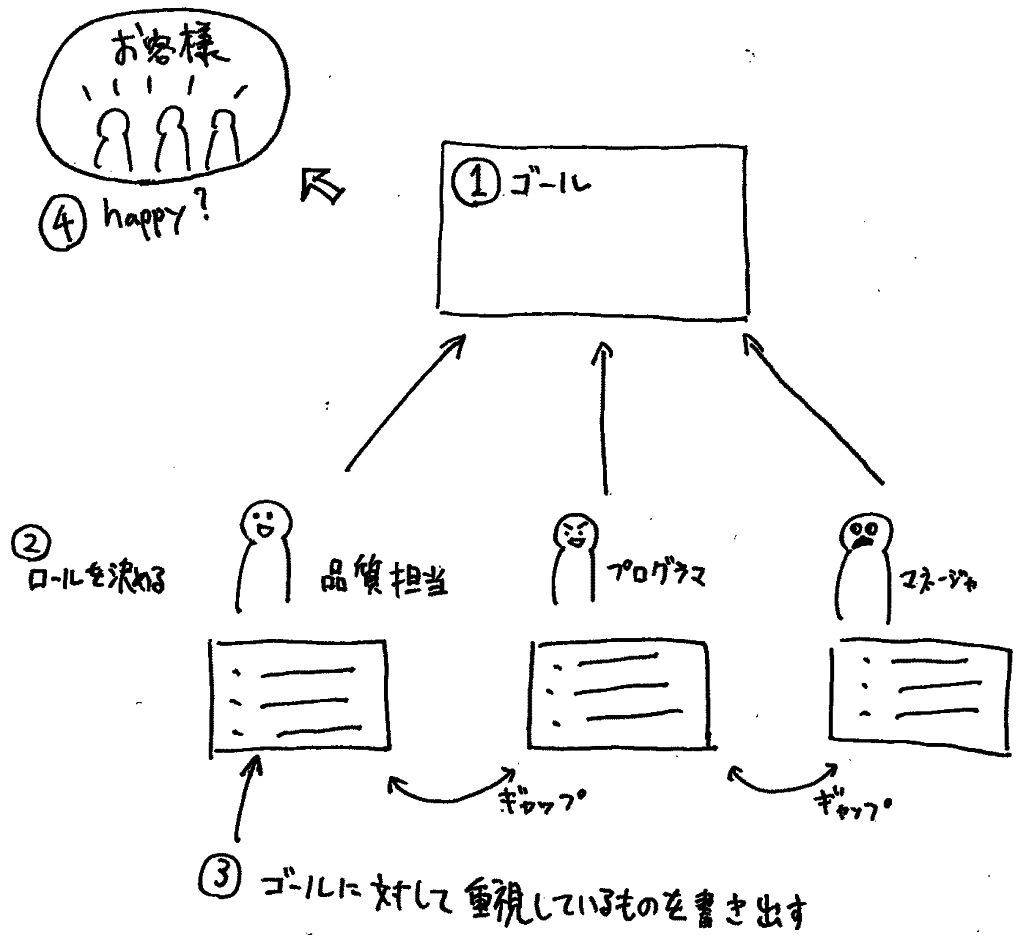 お客様
④ happy?
① ゴール
②
ロールを決める
品質担当
プログラマ
マネージャ
ギャップ
ギャップ
③ ゴールに対して重視しているものを書き出す